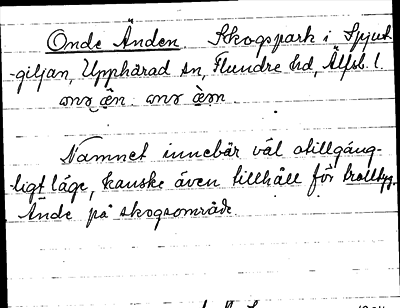 Onde Änden. Skogspark i Spjut-
giljan, Upphärad sn, Flundre hd, Älfsb. l.
Namnet innebär väl otillgäng-
ligt läge, kanske även tillhåll för trolltyg.
Ände på skogsområde